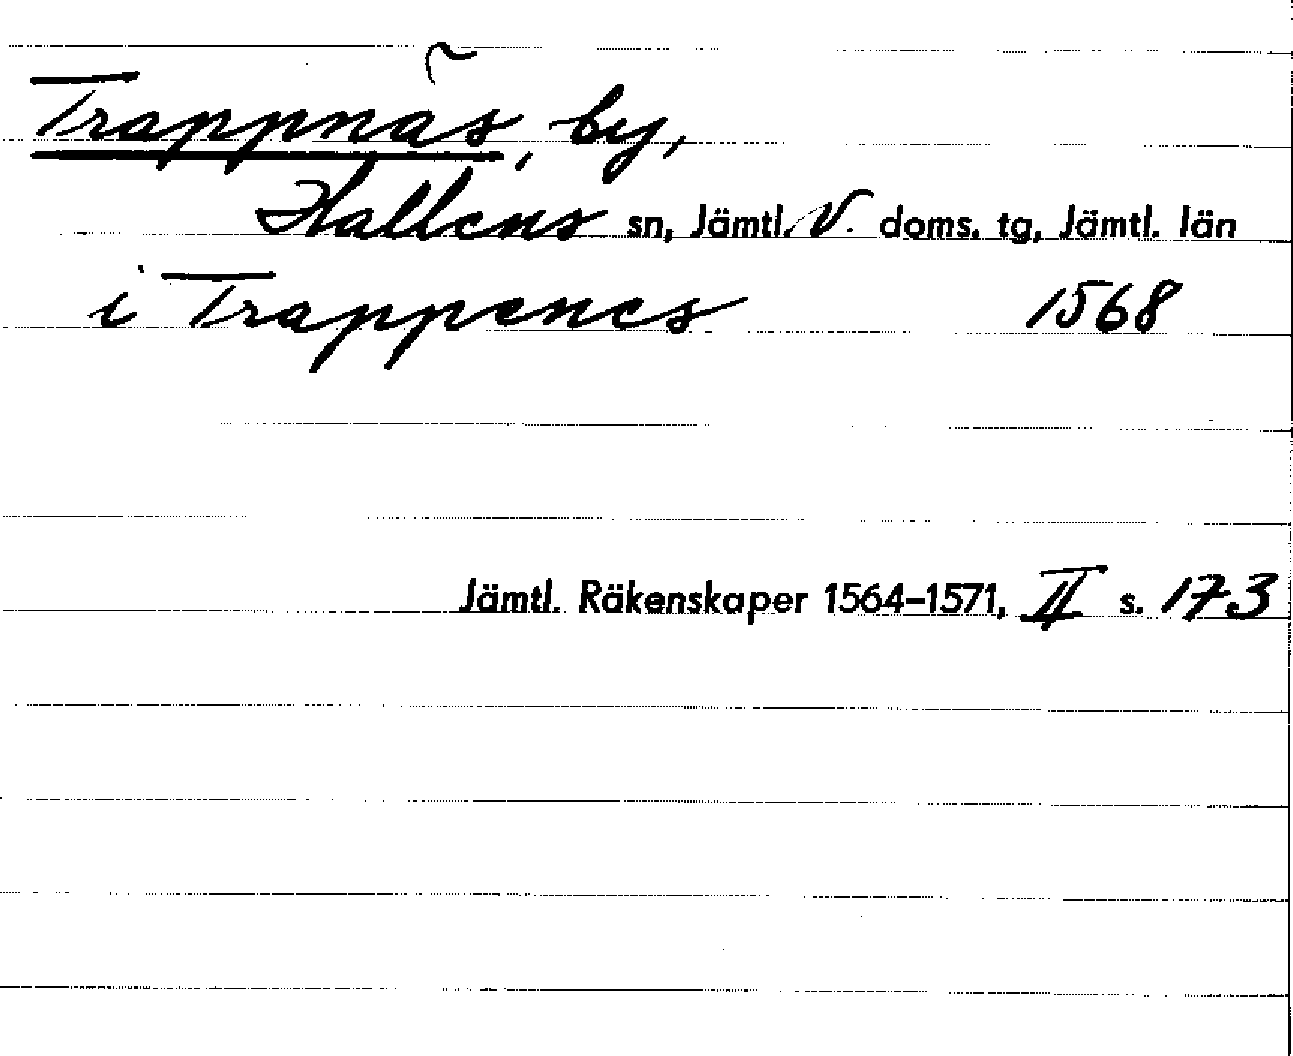 Trappnäs, by,
Hallens sn, Jämtl. V. doms. tg, Jämtl. län
i Trappenes 1568
Jämtl. Räkenskaper 1564-1571, II s. 173